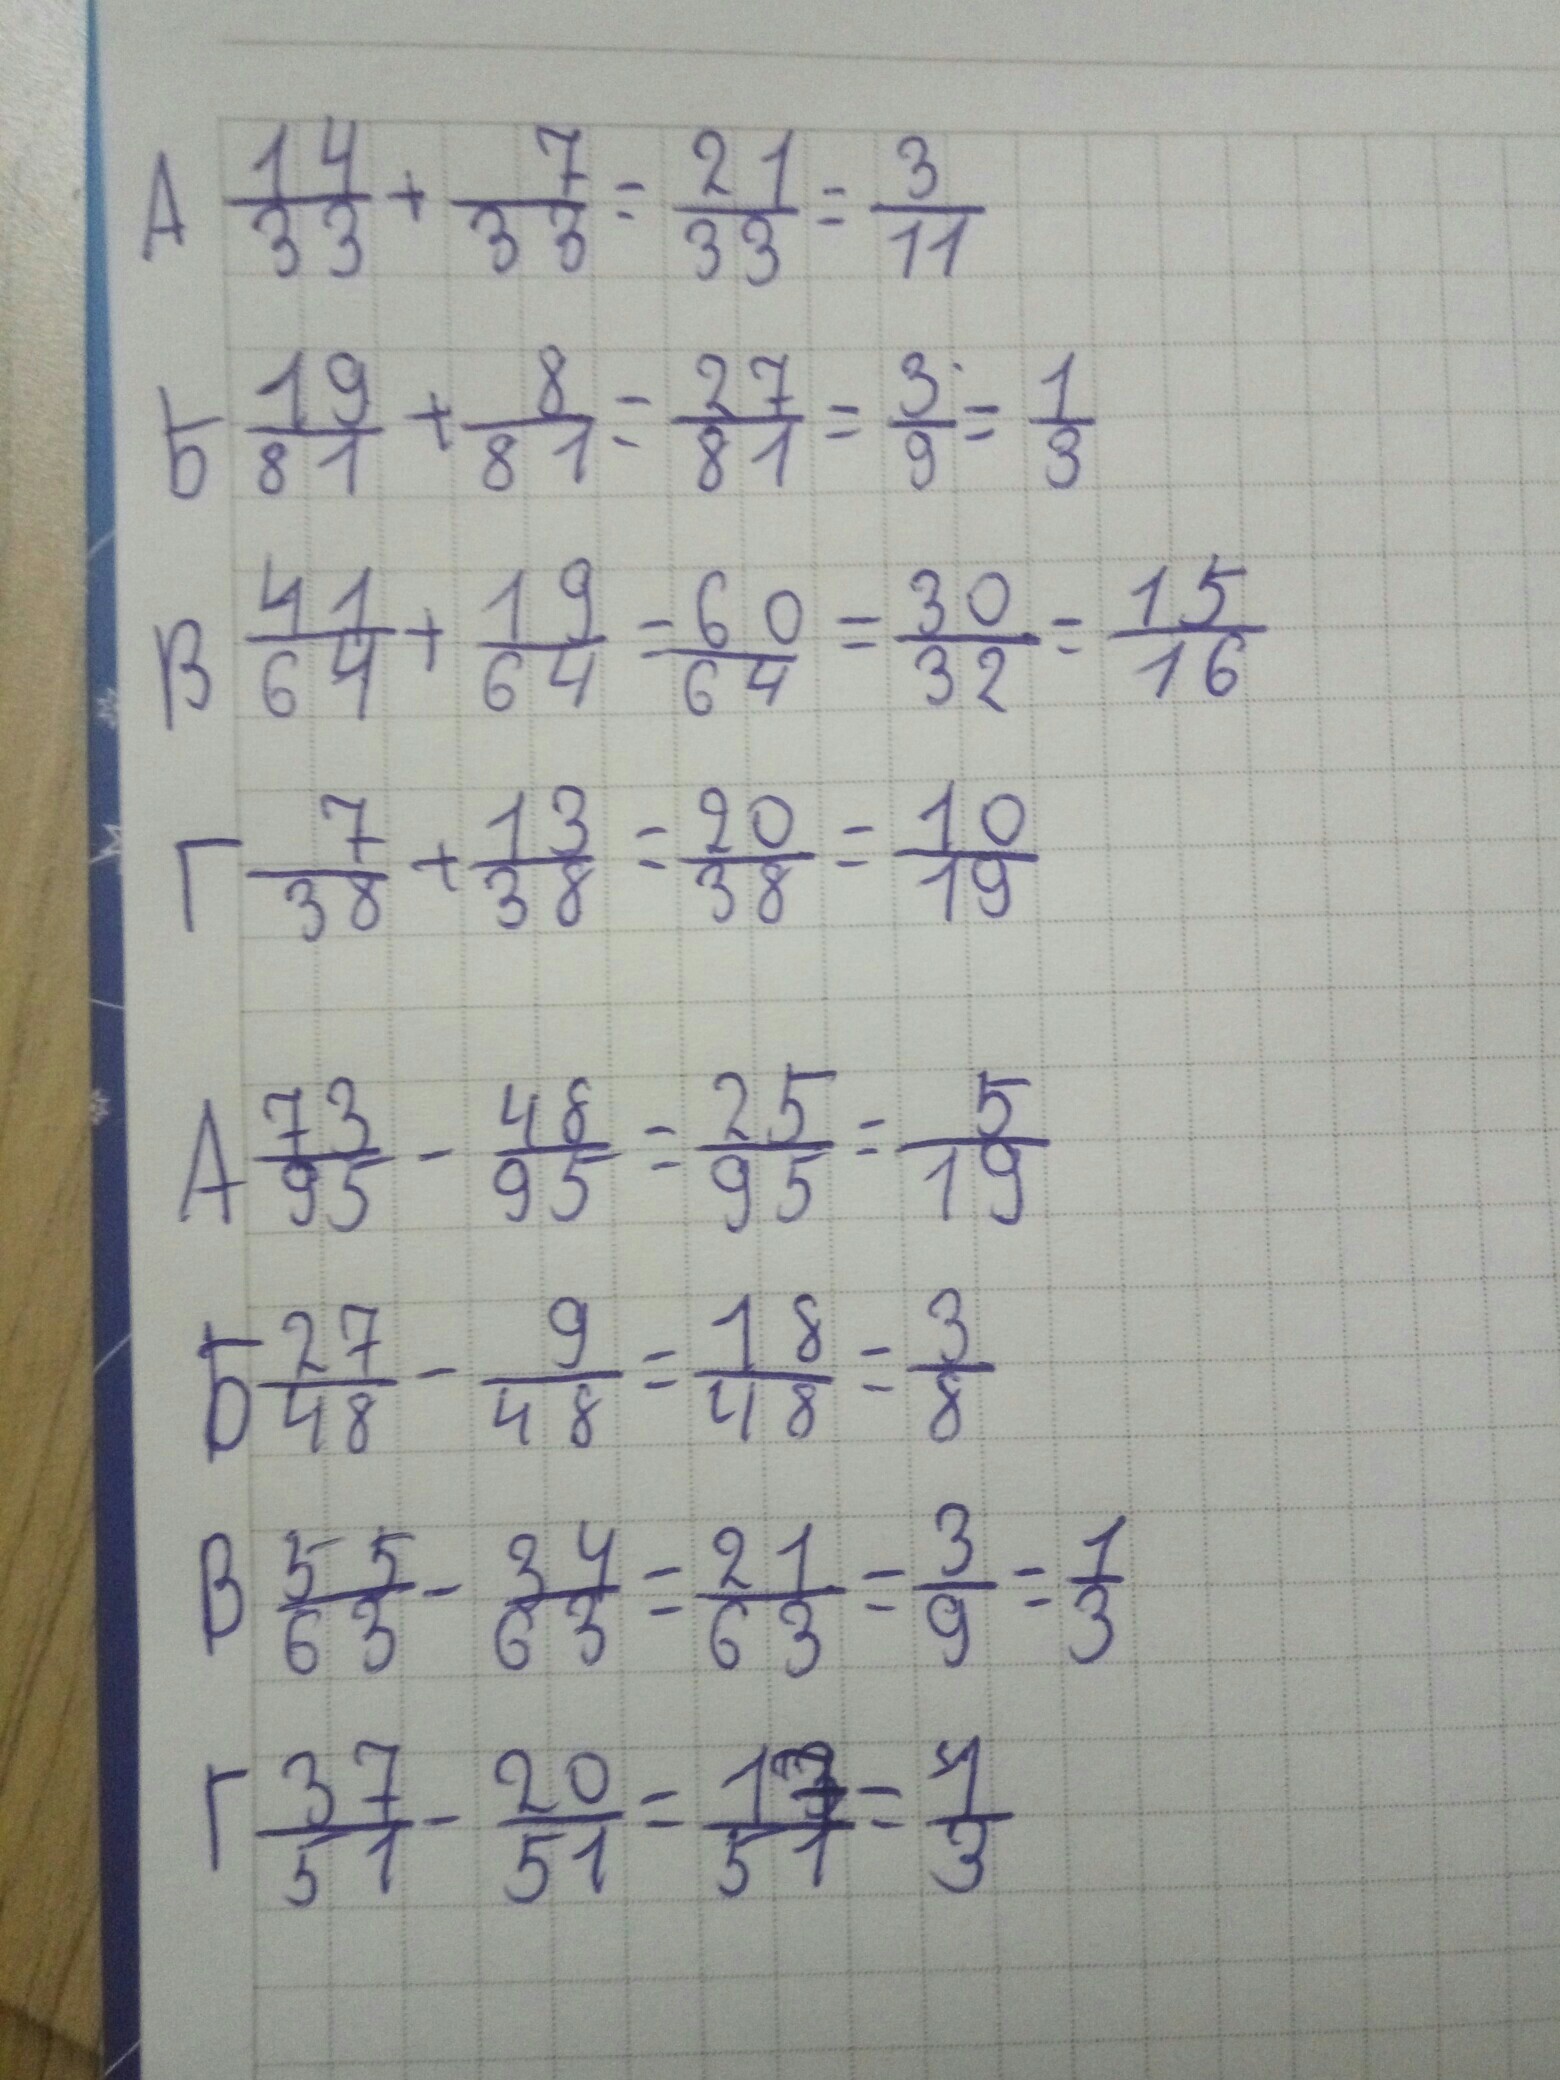 А 14/33 + 7/33 = 21/33 = 3/11
Б 19/81 + 8/81 = 27/81 = 3/9 = 1/3
В 41/64 + 19/64 = 60/64 = 30/32 = 15/16
Г 7/38 + 13/38 = 20/38 = 10/19
А 73/95 - 48/95 = 25/95 = 5/19
Б 27/48 - 9/48 = 18/48 = 3/8
В 55/63 - 34/63 = 21/63 = 3/9 = 1/3
Г 37/51 - 20/51 = 17/51 = 1/3